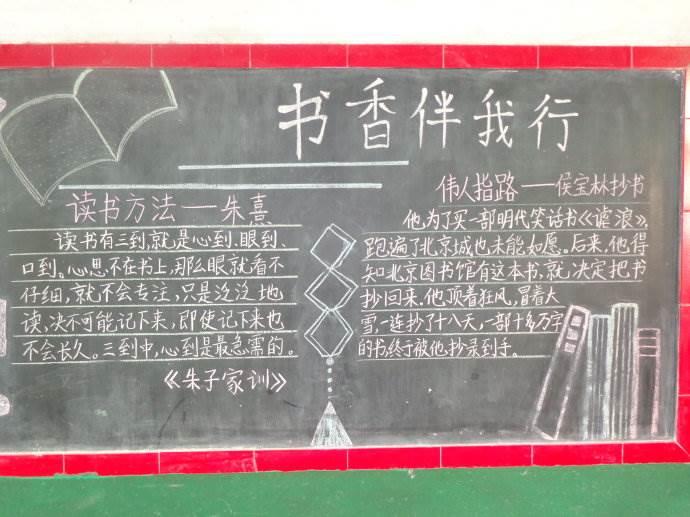 书香伴我行
读书方法——朱熹
读书有三到,就是心到.眼到、
口到。心思不在书上,那么眼就看不
仔细,就不会专注,只是泛泛地
读,决不可能记下来,即使记下来也
不会长久。三到中,心到是最急需的。
《朱子家训》
伟人指路——侯宝林抄书
他为了买一部明代笑话书《谑浪》,
跑遍了北京城也未能如愿。后来,他得
知北京图书馆有这本书,就决定把书
抄回来。他顶着狂风,冒着大
雪,一连抄了十八天,一部十多万字
的书,终于被他抄录到手。